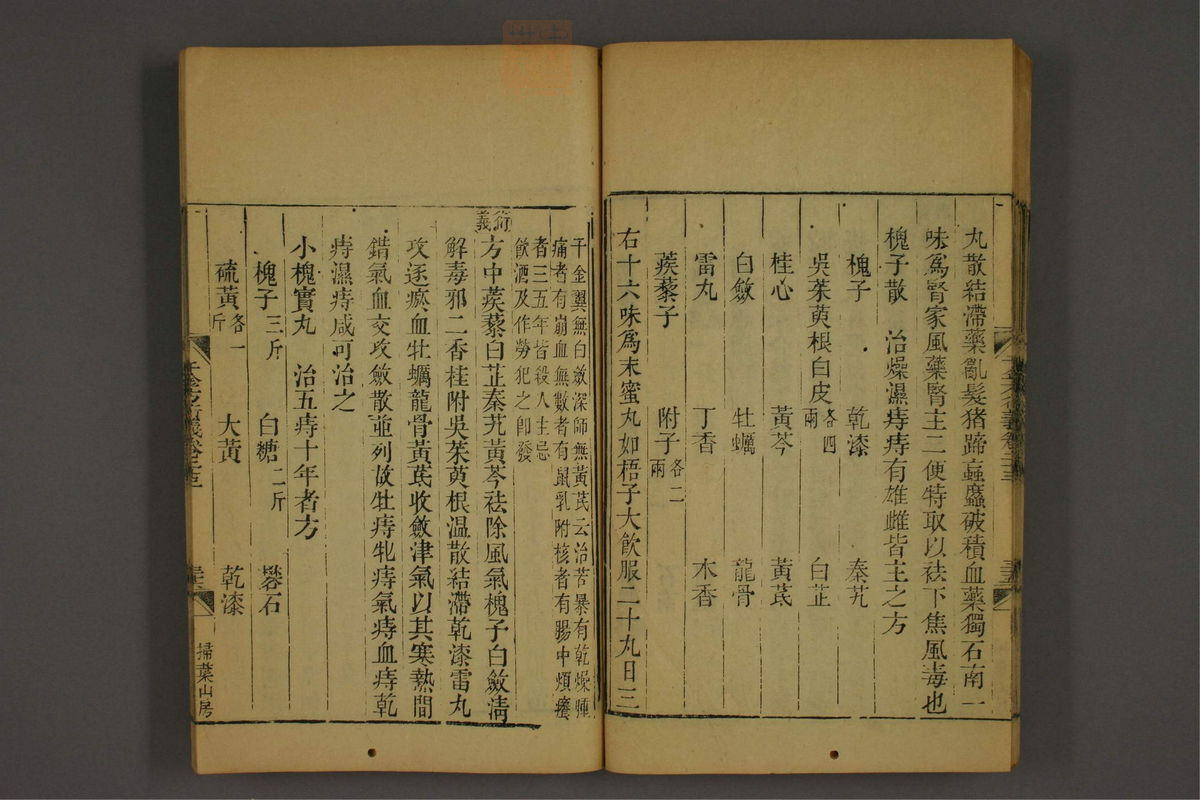 丸散結滯藥亂髮猪蹄蝱䗪破積血藥獨石南一
味爲腎家風藥腎主二便特取以袪下焦風毒也
槐子散　治燥濕痔痔有雄雌皆主之方
槐子　乾漆　秦艽
吳茱萸根白皮各四兩　白芷
桂心　黃芩　黃芪
白斂　牡蠣　龍骨
雷丸　丁香　木香
蒺藜子　附子各二兩
右十六味爲末蜜丸如梧子大飲服二十九日三
千金翼無白斂深師無黃芪云治苦暴有乾燥腫
痛者有崩血無數者有鼠乳附核者有腸中煩癢
者三五年皆殺人主忌
飲酒及作勞犯之卽發
衍義
方中蒺藜白芷秦艽黃芩袪除風氣槐子白斂清
解毒邪二香桂附吳茱萸根溫散結滯乾漆雷丸
攻逐瘀血牡蠣龍骨黃芪收斂津氣以其寒熱間
錯氣血交攻斂散並列故牡痔牝痔氣痔血痔乾
痔濕痔咸可治之
小槐實丸　治五痔十年者方
槐子三斤　白糖二斤　礬石
硫黃各一斤　大黃　乾漆
掃葉山房